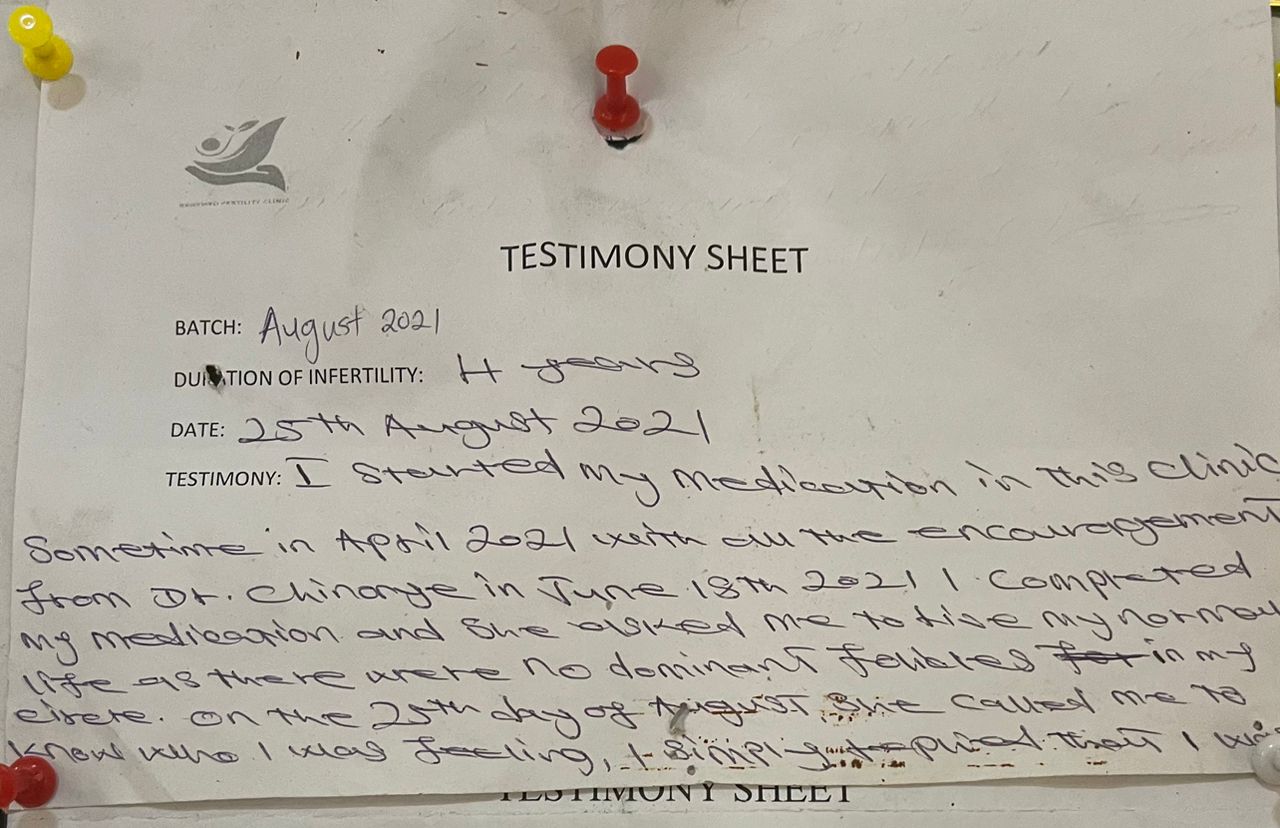 FERTILITY CLINIC
TESTIMONY SHEET
BATCH: August 2021
DURATION OF INFERTILITY: 4 years
DATE: 25th August 2021
TESTIMONY: I started my medication in this clinic
Sometime in April 2021 with all the encouragement
from Dr. in June 18th 2021 I completed
my medication and she asked me to live my normal
life as there were no dominant folicles for in my
circle. On the 25th day of August she called me to
know who I was feeling, I simply replied that I was
TESTIMONY SHEET